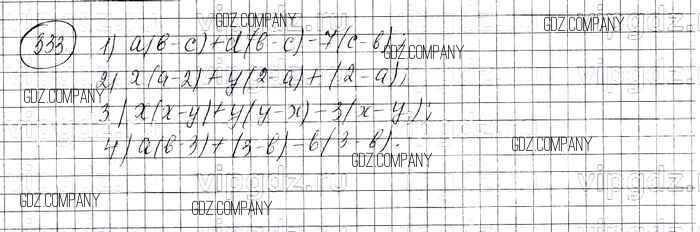 GDZ.COMPANY
333 1) a(b-c)+d(b-c)-7(c-b);
GDZ.COMPANY
GDZ.COMPANY
2) x(a-2)+y(2-a)+(2-a);
GDZ.COMPANY
3) x(x-y)+y(y-x)-3(x-y);
4) a(b-3)+(3-b)-b(3-b).
GDZ.COMPANY
GDZ.COMPANY
vipgdz.ru
vipgdz.ru
GDZ.COMPANY
GDZ.COMPANY